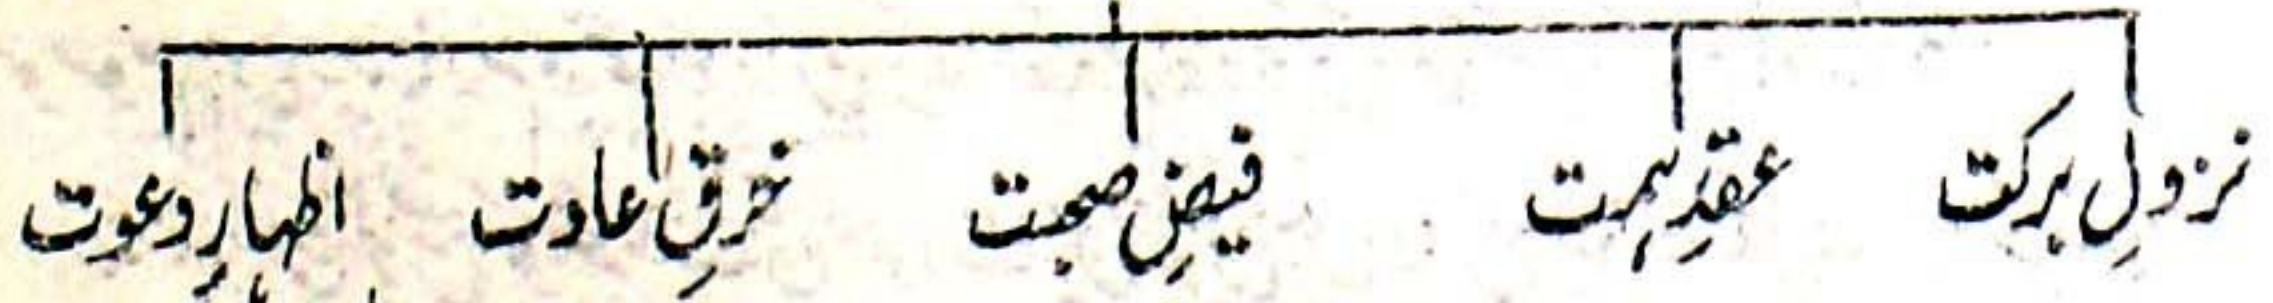 نزولِ برکت عقدِ ہمت فیضِ صحبت خرقِ عادت اظہارِ دعوت